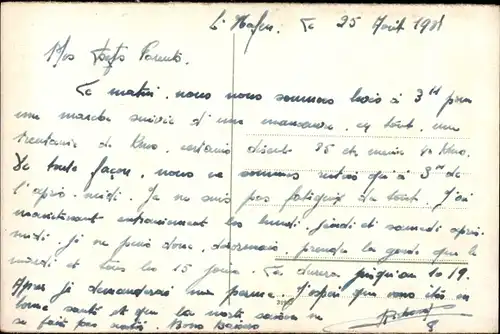 le 25 Août 19
Mes Parents.
Ce matin, nous nous sommes levés à 3H pour
une marche suivie d'une manoeuvre, en tout, une
trentaine de Kms, certains disent 35 et même 40 Kms.
De toute façon, nous ne sommes rentrés qu'à 3H de
l'après-midi. Je ne suis pas fatigué du tout. J'ai
maintenant entrainement les lundi, jeudi et samedi après-
midi. je ne puis donc, désormais, prendre la garde que le
mardi et tous les 15 jours. Ce durera jusqu'au 10/9.
Après je demanderai une perme. J'espère que vous êtes en
bonne santé et que la
fait pas Bons Baisers